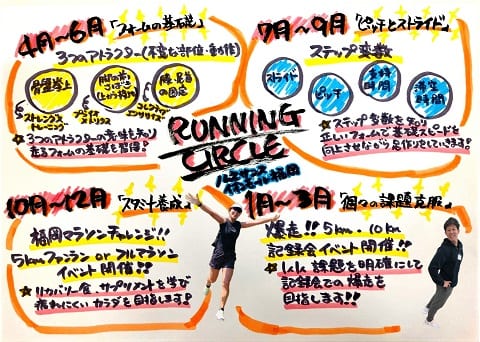 4月～6月「フォームの基礎」
3つのアトラクター(不変な部位・動作)
骨盤
ストレングス
トレーニング
膝・足首
の固定
3つのアトラクターの
走るフォームの基礎を習得!
7月～9月「ピッチとストライド」
ステップ変数
ストライド
ピッチ
支持
時間
滞空
時間
ステップ変数を知り
正しいフォームで基礎スピードを
向上させながら足作りをしています!
RUNNING
CIRCLE
ルネサンス
福岡
10月～12月「スタミナ養成」
福岡マラソンチャレンジ!!
5kmファンラン or フルマラソン
イベント開催!!
リカバリー食、サプリメントを学び
疲れにくいカラダを目指します!
1月～3月「個々の課題克服」
爆走!! 5km・10km
記録会イベント開催!!
課題を明確にして
記録会での爆走を
目指します!!